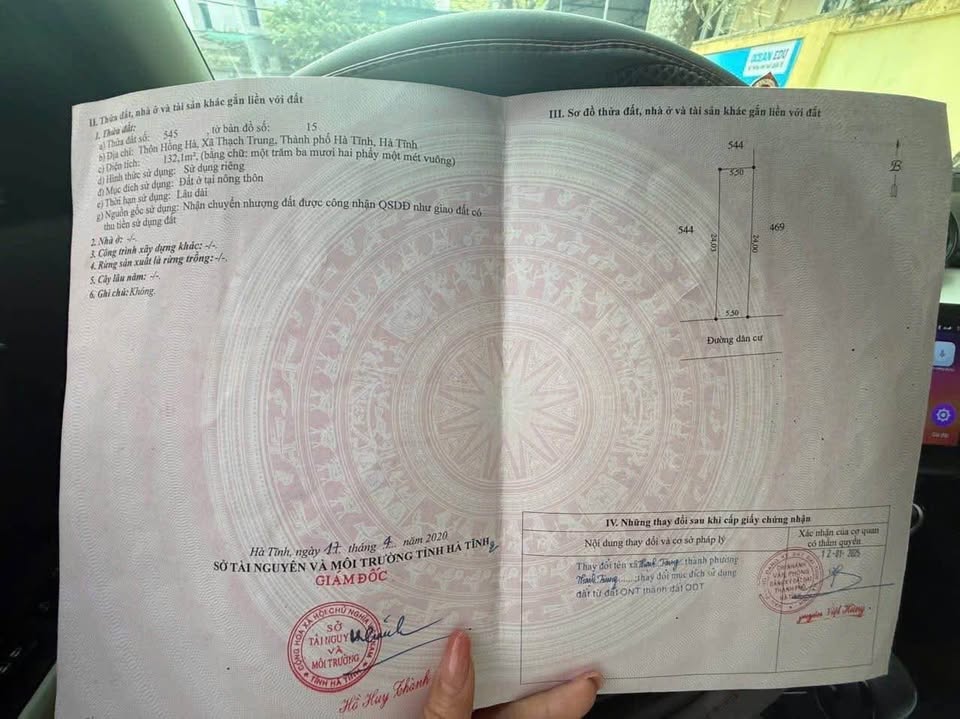 II. Thửa đất, nhà ở và tài sản khác gắn liền với đất
1. Thửa đất:
a) Thửa đất số: 545 , tờ bản đồ số: 15
b) Địa chỉ: Thôn Hồng Hà, Xã Thạch Trung, Thành phố Hà Tĩnh, Hà Tĩnh
c) Diện tích: 132,1m², (bằng chữ: một trăm ba mươi hai phẩy một mét vuông)
d) Hình thức sử dụng: Sử dụng riêng
đ) Mục đích sử dụng: Đất ở tại nông thôn
e) Thời hạn sử dụng: Lâu dài
g) Nguồn gốc sử dụng: Nhận chuyển nhượng đất được công nhận QSDĐ như giao đất có
thu tiền sử dụng đất
2. Nhà ở: -/-.
3. Công trình xây dựng khác: -/-.
4. Rừng sản xuất là rừng trồng: -/-.
5. Cây lâu năm: -/-.
6. Ghi chú: Không.
Hà Tĩnh, ngày 17 tháng 4 năm 2020
SỞ TÀI NGUYÊN VÀ MÔI TRƯỜNG TỈNH HÀ TĨNH
GIÁM ĐỐC
CỘNG HÒA XÃ HỘI CHỦ NGHĨA VIỆT NAM
SỞ
TÀI NGUYÊN
VÀ
MÔI TRƯỜNG
TỈNH HÀ TĨNH
Hồ Huy Thành
III. Sơ đồ thửa đất, nhà ở và tài sản khác gắn liền với đất
544
B
5,50
544
469
24,03
24,00
5,50
Đường dân cư
IV. Những thay đổi sau khi cấp giấy chứng nhận
Nội dung thay đổi và cơ sở pháp lý
Xác nhận của cơ quan
có thẩm quyền
Thay đổi tên xã Thạch Trung thành phường
Thạch Trung ; thay đổi mục đích sử dụng
đất từ đất ONT thành đất ODT
12-01-2025
CHI NHÁNH
VĂN PHÒNG
ĐĂNG KÝ ĐẤT ĐAI
THÀNH PHỐ
HÀ TĨNH
Việt Hùng
OCEAN EDU